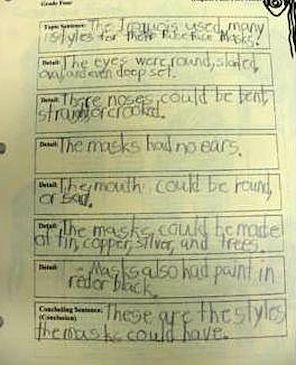 Grade Four
Topic Sentence: The Iroquois used many
styles for there False Face Masks.
Detail: The eyes were round, slanted,
oval and even deep set.
Detail: There noses could be bent,
straight or crooked.
Detail: The masks had no ears.
Detail: The mouth could be round,
or sad.
Detail: The masks could be made
of tin, copper, silver, and trees.
Detail: Masks also had paint in
red or black.
Concluding Sentence: These are the styles
(Conclusion)
the masks could have.